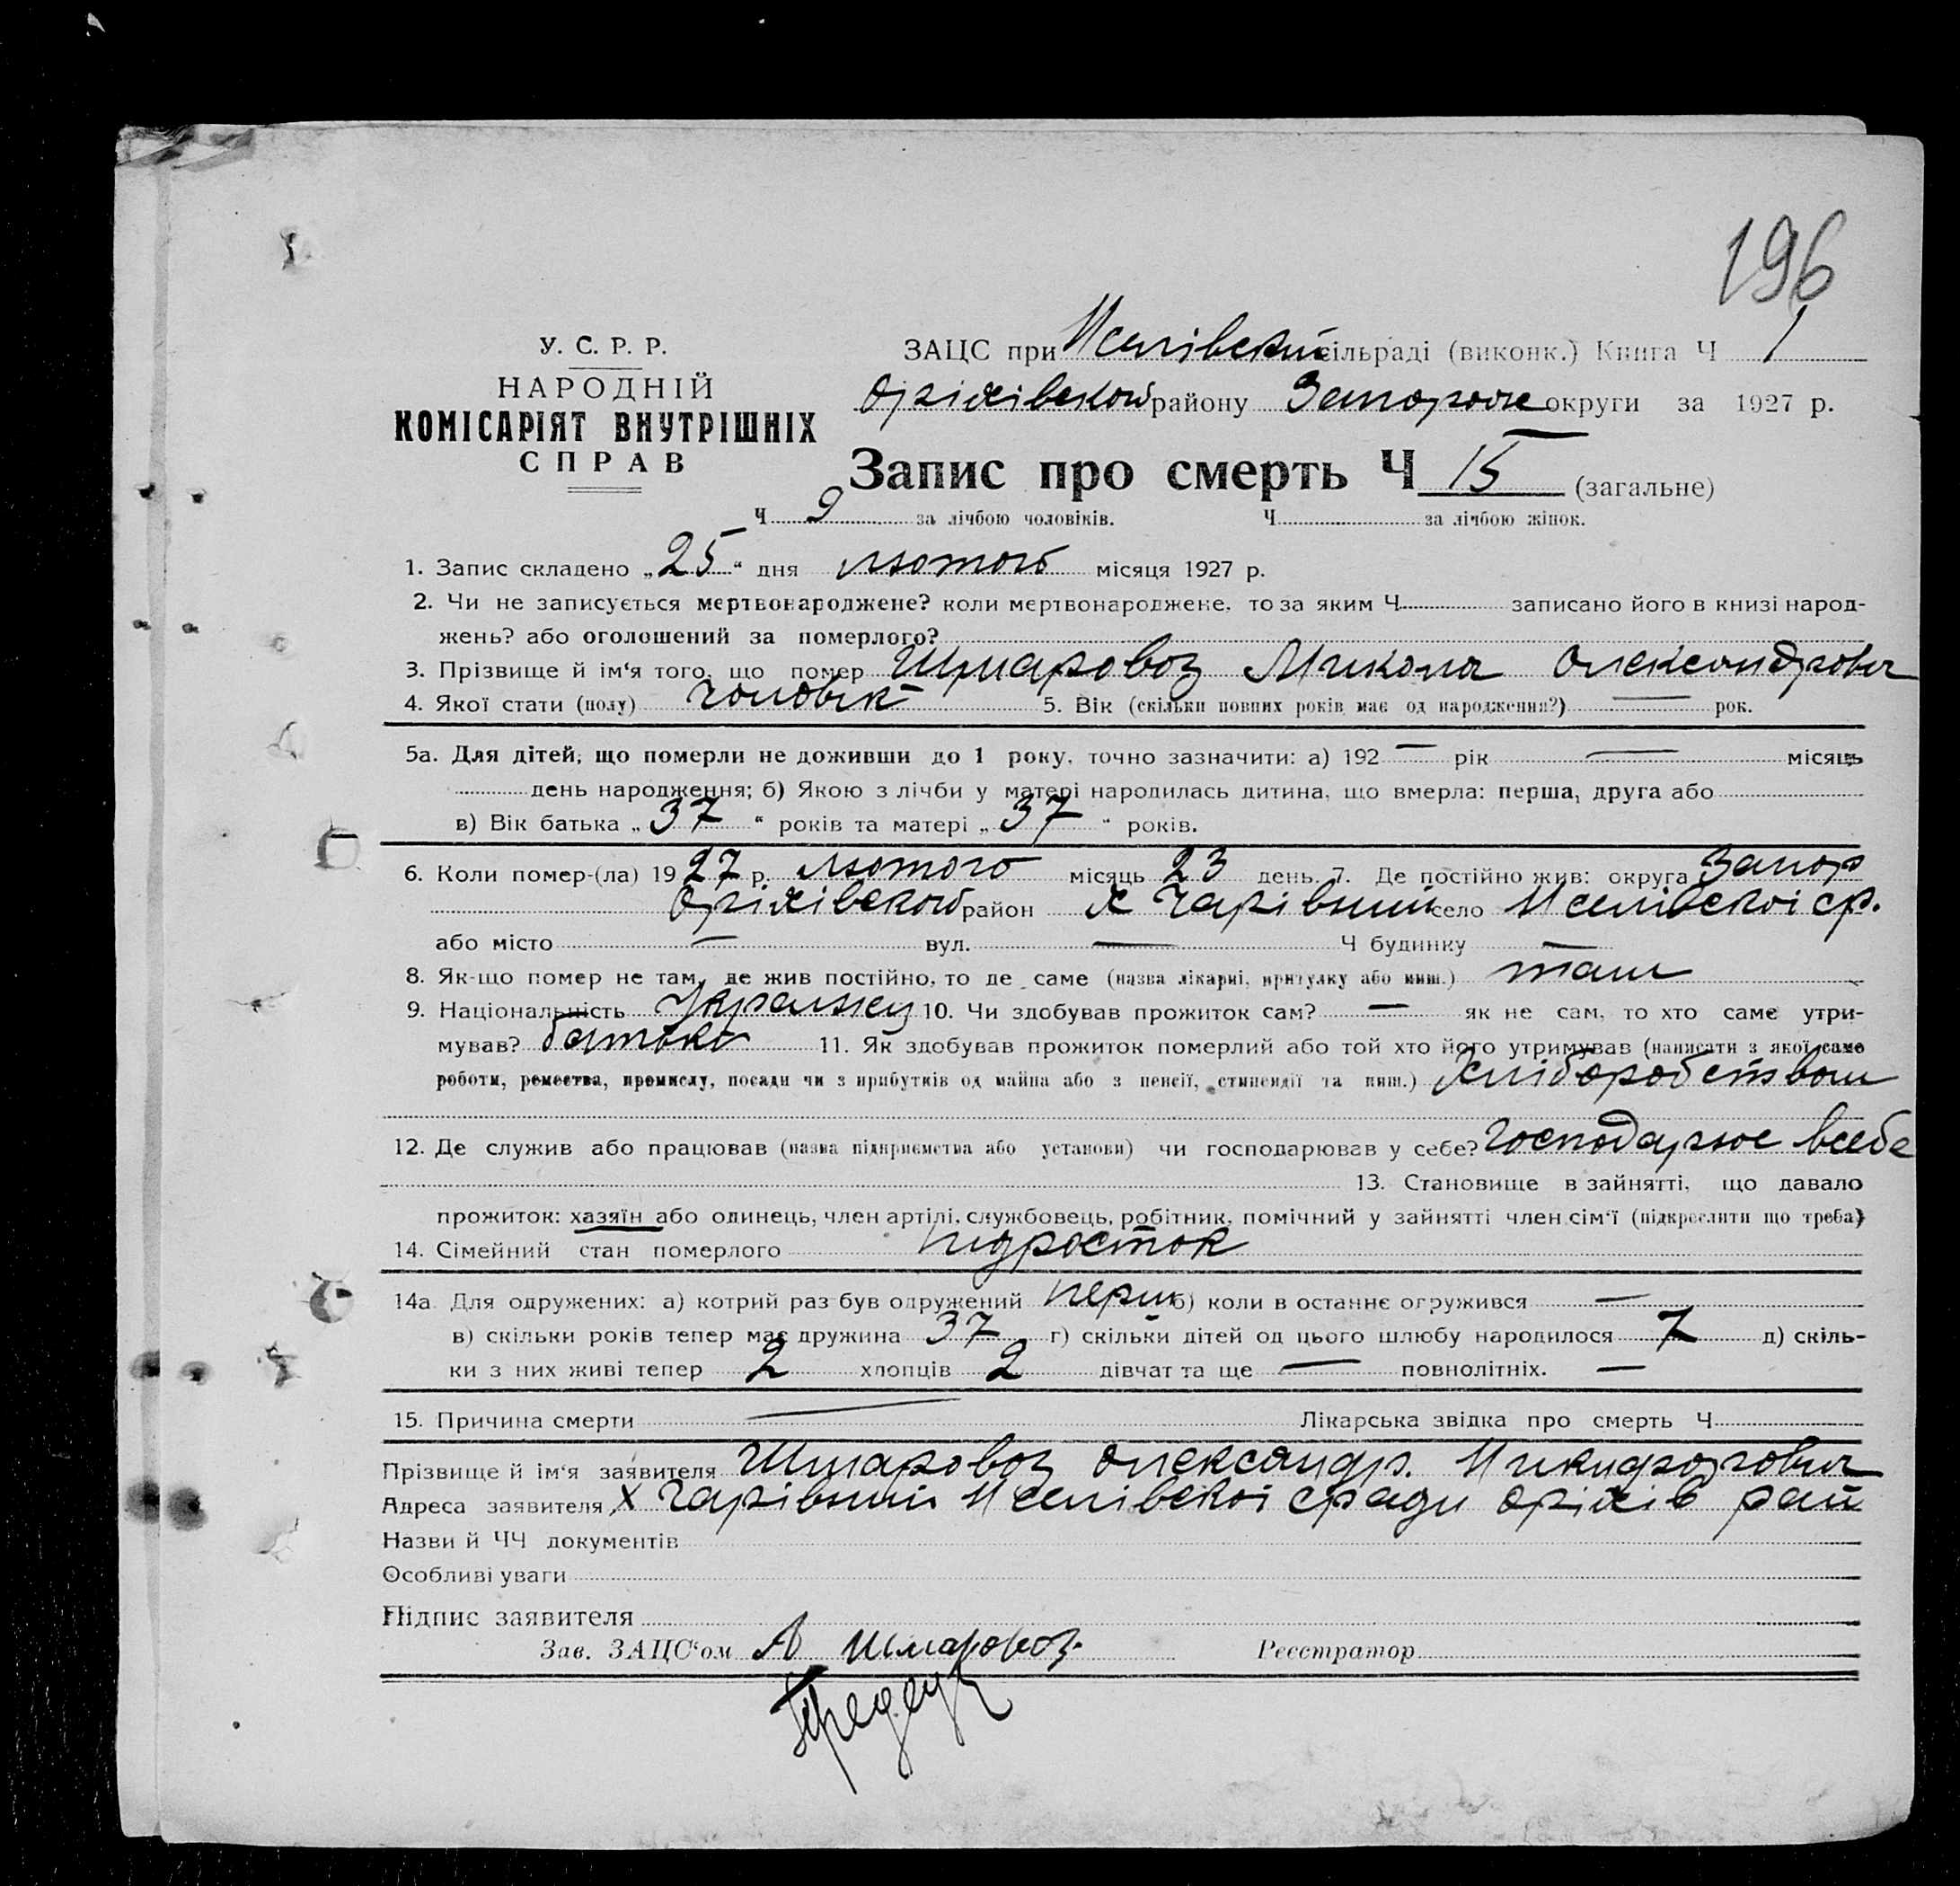 196
У. С. Р. Р.
НАРОДНІЙ
КОМІСАРІЯТ ВНУТРІШНІХ
СПРАВ
ЗАЦС при сільраді (виконк.) Книга Ч 1
Оріхівської району Запоріж округи за 1927 р.
Запис про смерть Ч 15 (загальне)
Ч 9 за лічбою чоловіків. Ч за лічбою жінок.
1. Запис складено „25“ дня лютого місяця 1927 р.
2. Чи не записується мертвонароджене? коли мертвонароджене, то за яким Ч записано його в книзі народ-
жень? або оголошений за померлого?
3. Прізвище й ім‘я того, що помер Шмаровоз Микола Олександрович
4. Якої стати (полу) чоловік 5. Вік (скільки повних років має од народження?) — рок.
5а. Для дітей, що померли не доживши до 1 року, точно зазначити: а) 192 — рік — місяць
день народження; б) Якою з лічби у матері народилась дитина, що вмерла: перша, друга або
в) Вік батька „37“ років та матері „37“ років.
6. Коли помер-(ла) 1927 р. лютого місяць 23 день. 7. Де постійно жив: округа Запор
Оріхівської район х Чарівний село ср.
або місто — вул. — Ч будинку —
8. Як-що помер не там, де жив постійно, то де саме (назва лікарні, притулку або инш.) там
9. Національність Українец 10. Чи здобував прожиток сам? — як не сам, то хто саме утри-
мував? батько 11. Як здобував прожиток померлий або той хто його утримував (написати з якої саме
роботи, ремества, промислу, посади чи з прибутків од майна або з пенсії, стипендії та инш.) Хліборобством
12. Де служив або працював (назва підприємства або установи) чи господарював у себе? господарює всебе
13. Становище в зайнятті, що давало
прожиток: хазяїн або одинець, член артілі, службовець, робітник, помічний у зайнятті член сім‘ї (підкреслити що треба)
14. Сімейний стан померлого підросток
14а Для одружених: а) котрий раз був одружений перш б) коли в останнє огружився —
в) скільки років тепер має дружина 37 г) скільки дітей од цього шлюбу народилося 7 д) скіль-
ки з них живі тепер 2 хлопців 2 дівчат та ще — повнолітніх. —
15. Причина смерти — Лікарська звідка про смерть Ч
Прізвище й ім‘я заявителя Шмаровоз Олександр. Никифорович
Адреса заявителя х Чарівний сради оріхів рай
Назви й ЧЧ документів
Особливі уваги
Підпис заявителя
Зав. ЗАЦС‘ом А Шмаровоз Реєстратор